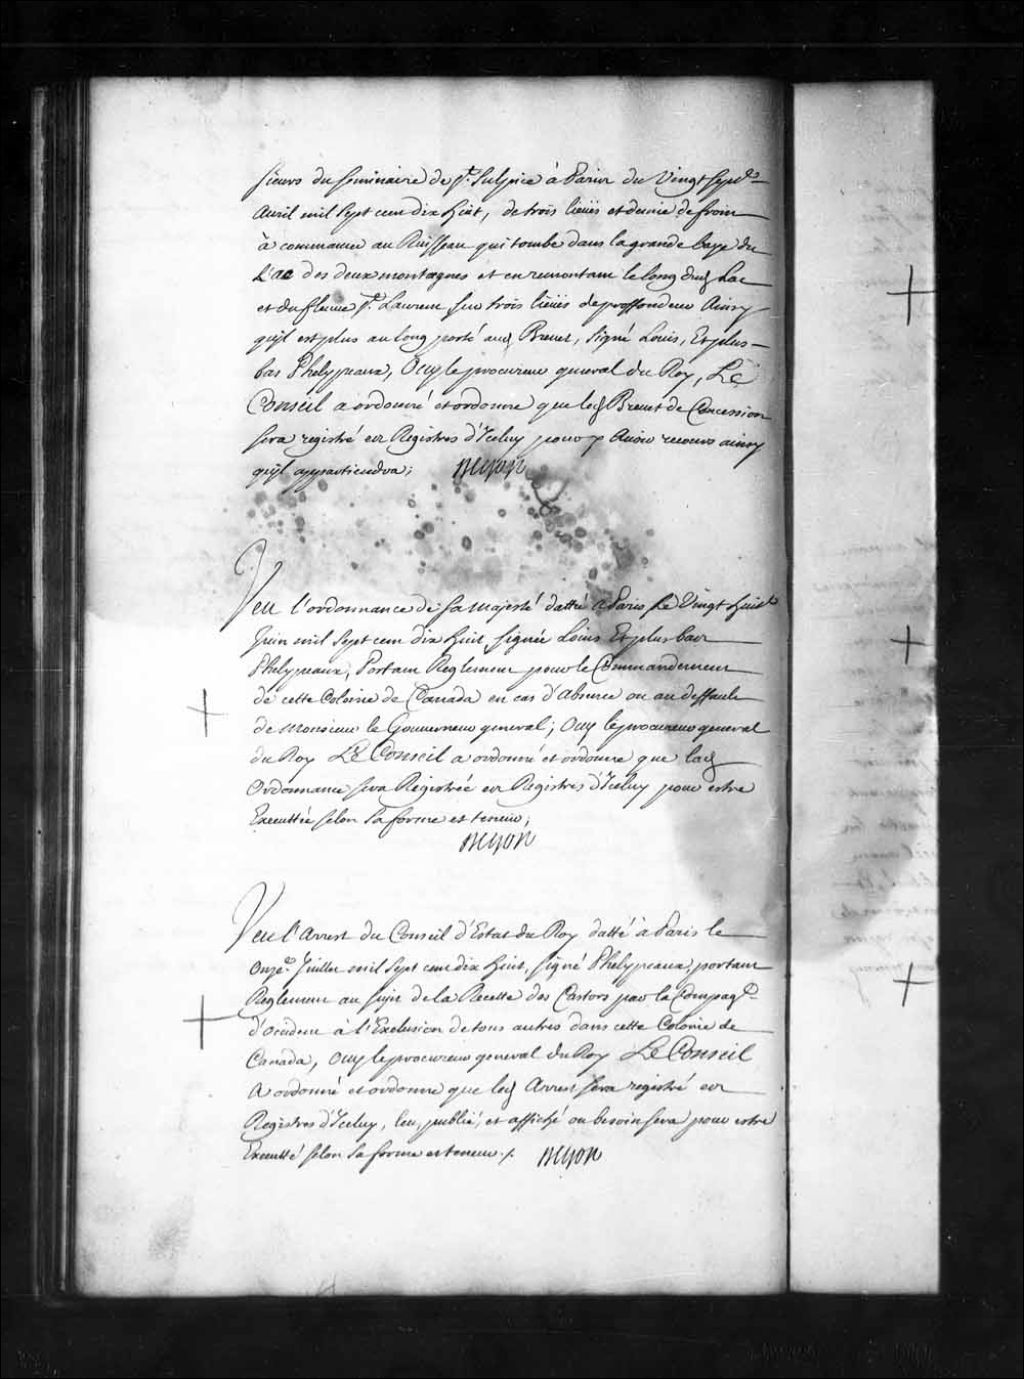 sieurs du seminaire de St. Sulpice à Paris du Vingt septe.
Auril mil sept cent dix huit, de trois lieües et demie de front
à commancer au Ruisseau qui tombe dans la grande baye du
Lac des deux montagnes et en remontant le long dud. Lac
et du fleuue St. Laurent sur trois lieües de proffondeur Ainsy
qu'jl est plus au long porté aud. Breuet, signé Louis, Et plus
bas Phelypeaux, Ouy le procureur general du Roy, Le
Conseil a ordonné et ordonne que led. Breuet de Concession
sera registré ez Registres d'Iceluy pour y Auoir recours ainsy
qu'jl appartiendra;
Begon
Veu l'ordonnance de sa majesté dattée a Paris Le Vingt huit
Juin mil sept cent dix huit, signée Louis Et plus bas
Phelypeaux, Portant Reglement pour le Commandement
de cette Colonie de Canada en cas d'Absence ou au deffault
de Monsieur le Gouuerneur general; Ouy le procureur general
du Roy Le Conseil a ordonné et ordonne que lad.
Ordonnance sera Registrée ez Registres d'Iceluy pour estre
Executtée selon sa forme et teneur;
Begon
Veu l'Arrest du Conseil d'Estat du Roy datté à Paris le
Onze. Juillet mil sept cent dix huit, signé Phelypeaux, portant
Reglement au sujet de la Recette des Castors par la Compage.
d'Occident à l'Exclusion de tous autres dans cette Colonie de
Canada, Ouy le procureur general du Roy Le Conseil
a ordonné et ordonne que led. Arrest sera registré ez
Registres d'Iceluy, leu, publié, et affiché ou besoin sera pour estre
Executté selon sa forme et teneur ./.
Begon